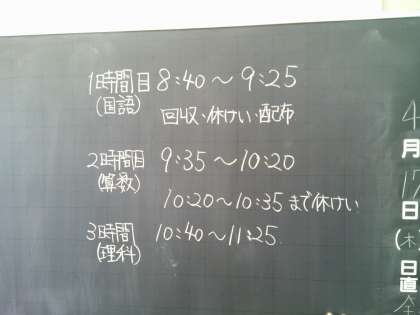 1時間目 8:40～9:25
(国語)
回収・休けい・配布
2時間目 9:35～10:20
(算数)
10:20～10:35まで休けい
3時間 10:40～11:25
(理科)
4
月
17
日
(木
日
直